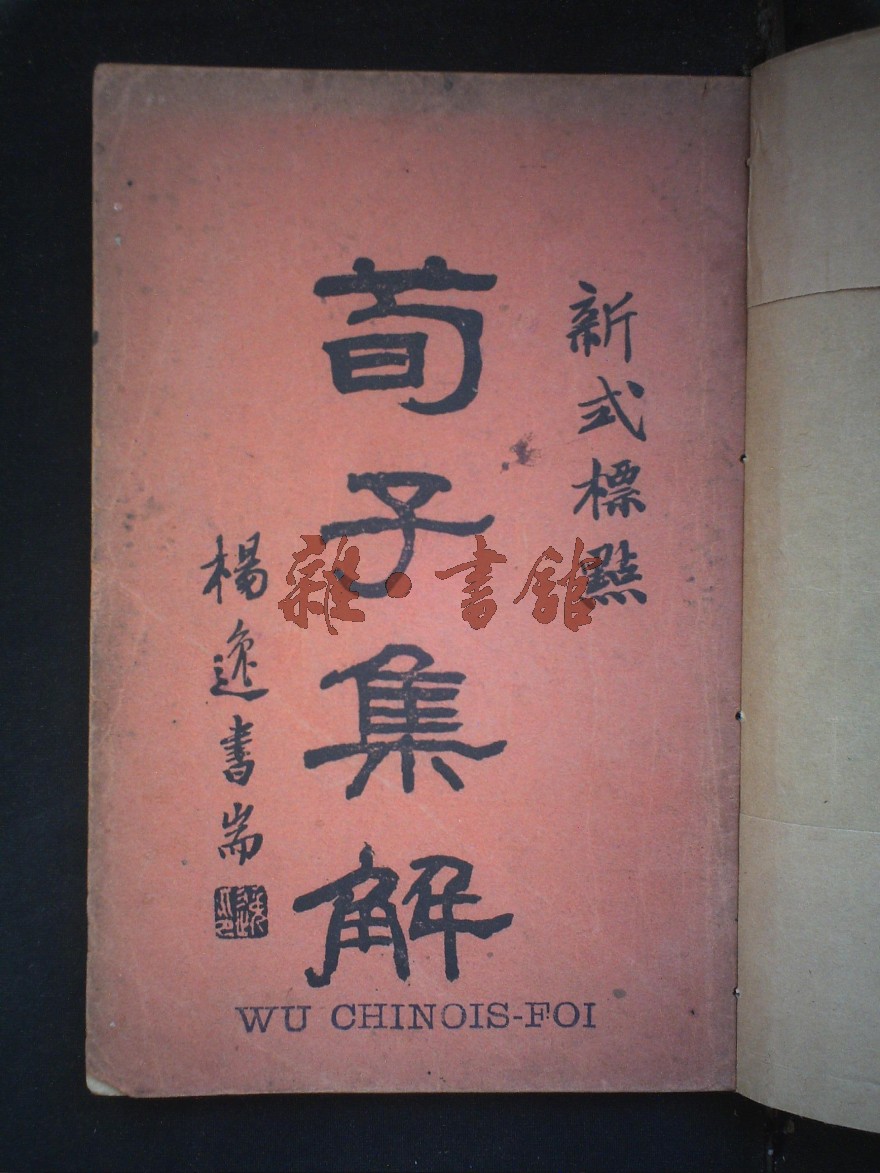 新式標點
荀子集解
楊逸書耑
WU CHINOIS-FOI
雜·書館